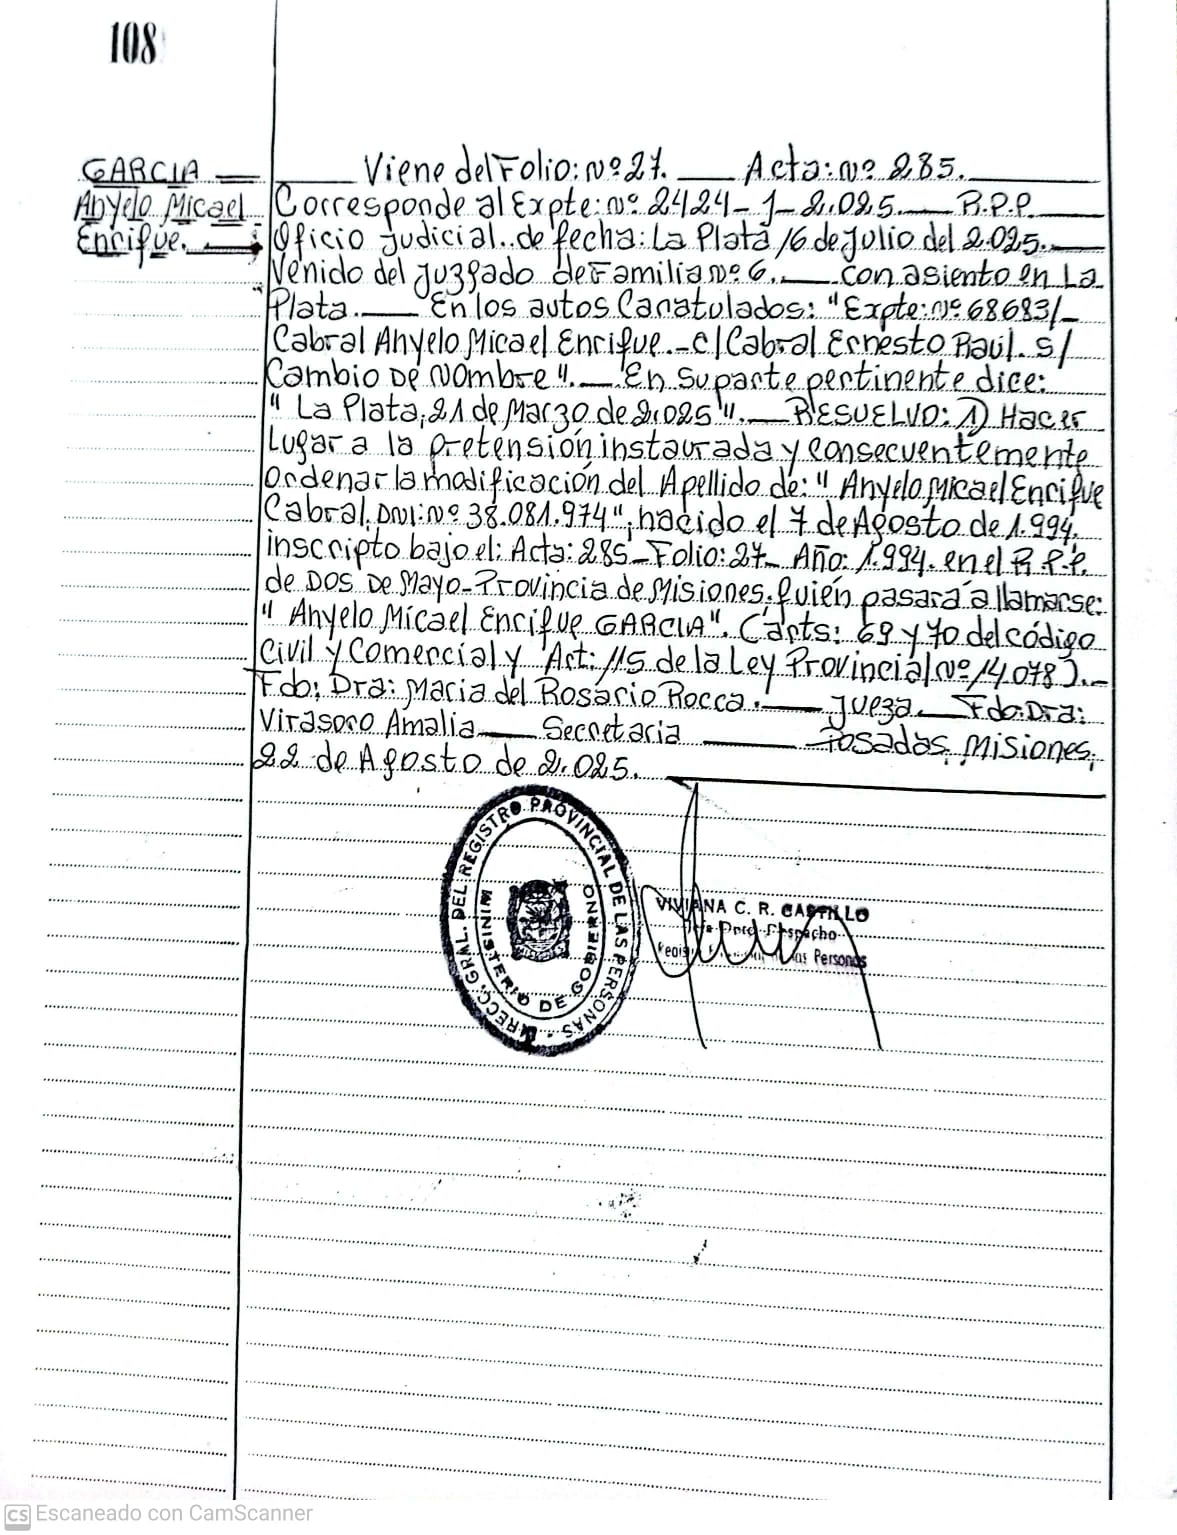 108
GARCIA
Anyelo Micael
Enrique.
Viene del Folio: Nº 27. Acta: Nº 285.
Corresponde al Expte: Nº 2424-J-2.025. R.P.P.
Oficio Judicial. de fecha: La Plata 16 de Julio del 2.025.
Venido del Juzgado de Familia Nº 6. con asiento en La
Plata. En los autos Caratulados: "Expte: Nº 68683/-
Cabral Anyelo Micael Enrique.-C/Cabral Ernesto Raúl. S/
Cambio De Nombre". En su parte pertinente dice:
" La Plata, 21 de Marzo de 2.025". RESUELVO: 1) Hacer
Lugar a la pretensión instaurada y consecuentemente
Ordenar la modificación del Apellido de: " Anyelo Micael Enrique
Cabral. DNI: Nº 38.081.974", nacido el 7 de Agosto de 1.994.
inscripto bajo el: Acta: 285-Folio: 27- Año: 1.994. en el R.P.P.
de DOS DE Mayo-Provincia de Misiones. quién pasará a llamarse:
" Anyelo Micael Enrique GARCIA". Carts: 69 y 70 del código
Civil y Comercial y Art: 115 de la Ley Provincial Nº 14.078).-
Fdo: Dra: Maria del Rosario Rocca. Jueza. Fdo: Dra:
Virasoro Amalia Secretaria Posadas, Misiones,
22 de Agosto de 2.025.
DIRECC. GRAL. DEL REGISTRO PROVINCIAL DE LAS PERSONAS -
MINISTERIO DE GOBIERNO
VIVIANA C. R. CASTILLO
Despacho
las Personas
CS Escaneado con CamScanner